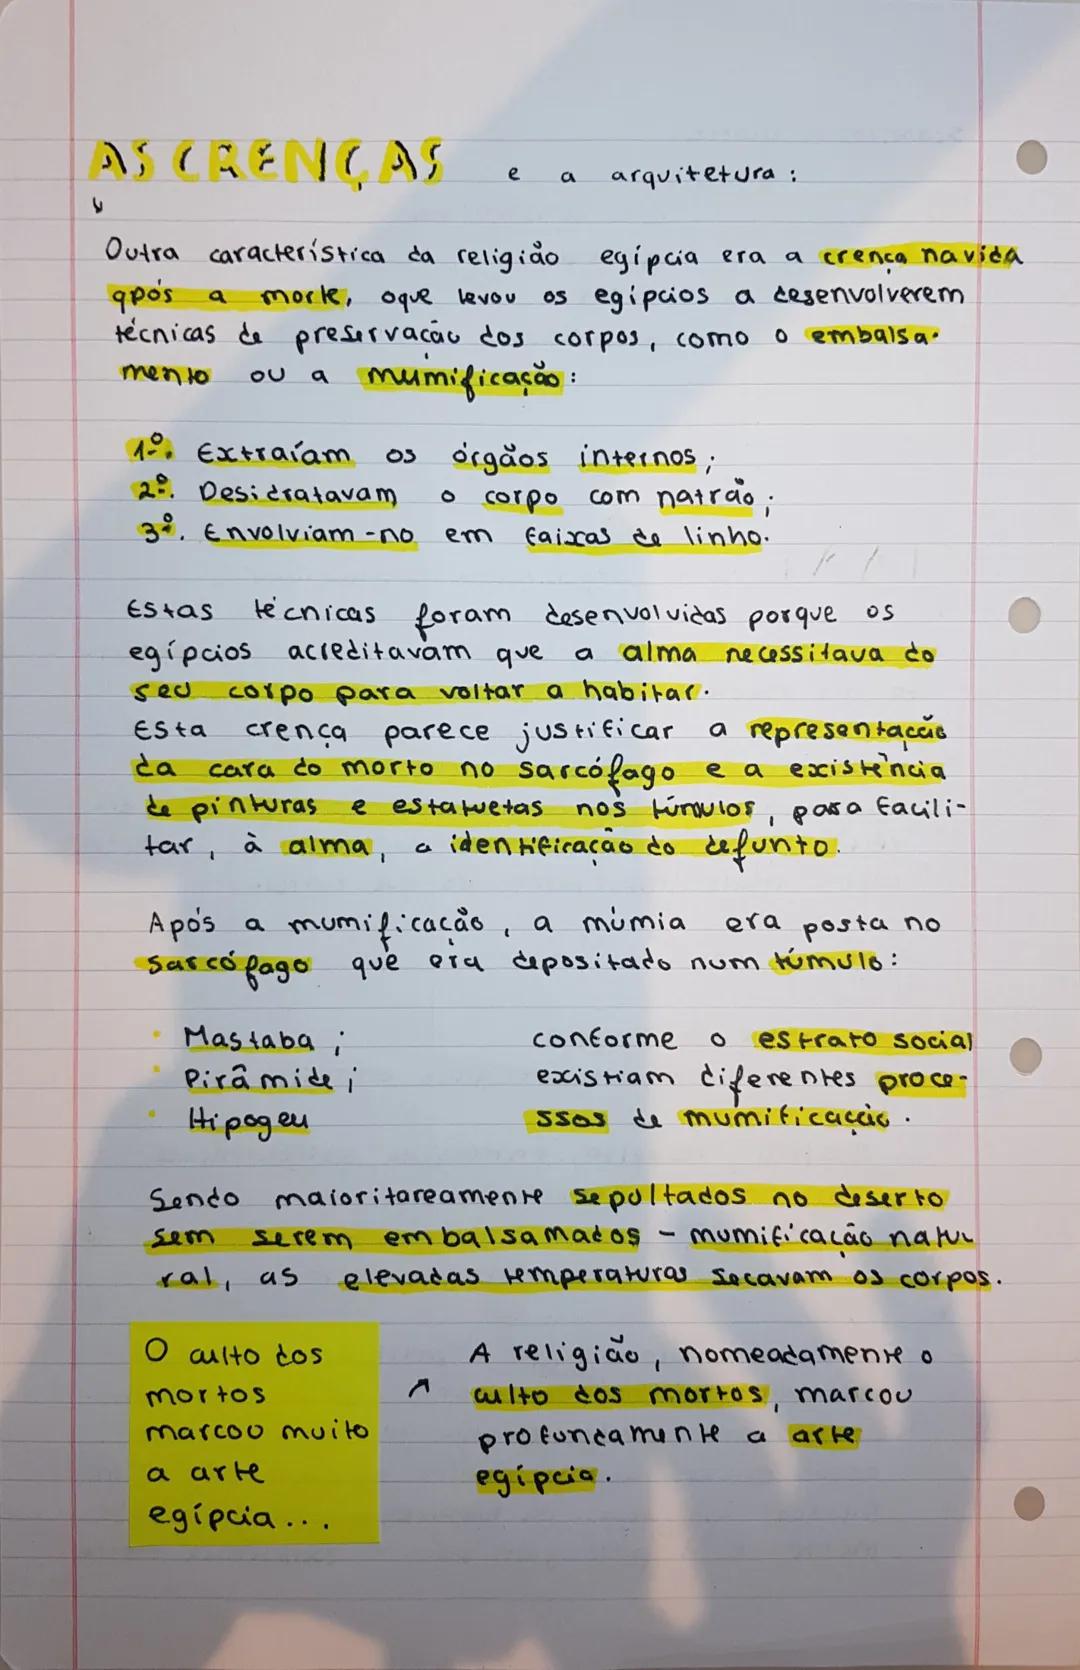 AS CRENÇAS e a arquitetura:
Outra característica da religião egípcia era a crença na vida
após a morte, o que levou os egípcios a desenvolverem
técnicas de preservação dos corpos, como o embalsa-
mento ou a mumificação:
1º. Extraíam os órgãos internos;
2º. Desidratavam o corpo com natrão;
3º. Envolviam-no em faixas de linho.
Estas técnicas foram desenvolvidas porque os
egípcios acreditavam que a alma necessitava do
seu corpo para voltar a habitar.
Esta crença parece justificar a representação
da cara do morto no sarcófago e a existência
de pinturas e estatuetas nos túmulos, para facili-
tar, à alma, a identificação do defunto.
Após a mumificação, a múmia era posta no
sarcófago que era depositado num túmulo:
• Mastaba;
• Pirâmide;
• Hipogeu
conforme o estrato social
existiam diferentes proce-
ssos de mumificação.
Sendo maioritareamente sepultados no deserto
sem serem embalsamados - mumificação natu
ral, as elevadas temperaturas secavam os corpos.
O culto dos
mortos
marcou muito
a arte
egípcia...
A religião, nomeadamente o
culto dos mortos, marcou
profundamente a arte
egípcia.